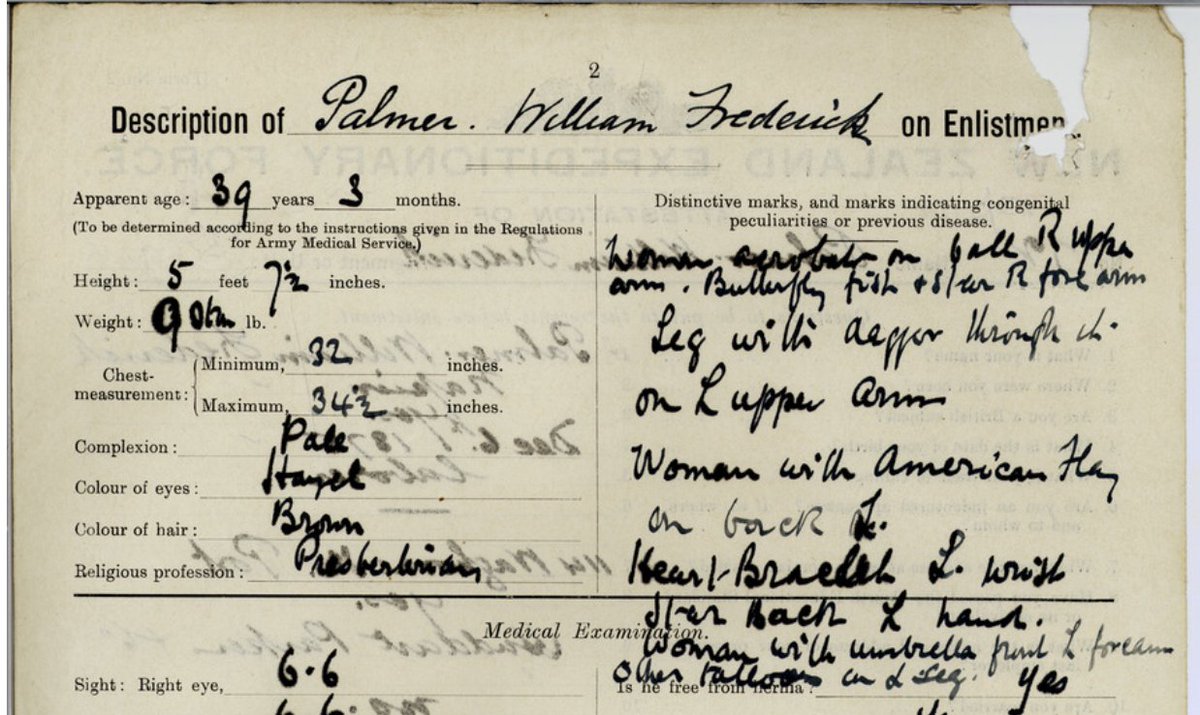 2
Description of Palmer. William Frederick on Enlistment.
Apparent age: 39 years 3 months.
(To be determined according to the instructions given in the Regulations
for Army Medical Service.)
Height: 5 feet 7½ inches.
Weight: 9 lb.
Chest-measurement: Minimum, 32 inches.
Maximum, 34½ inches.
Complexion: Pale
Colour of eyes: Hazel
Colour of hair: Brown
Religious profession: Presbeterian
Distinctive marks, and marks indicating congenital
peculiarities or previous disease.
Woman acrobat on ball R upper
arm. Butterfly fish & star R forearm
Leg with dagger through it
on L upper arm
Woman with American Flag
on back L.
Heart Bracelet L. wrist
Star Back L hand.
Woman with umbrella front L forearm
Other Tattoos on L Leg.
Medical Examination.
Sight: Right eye, 6.6
Is he free from hernia: Yes